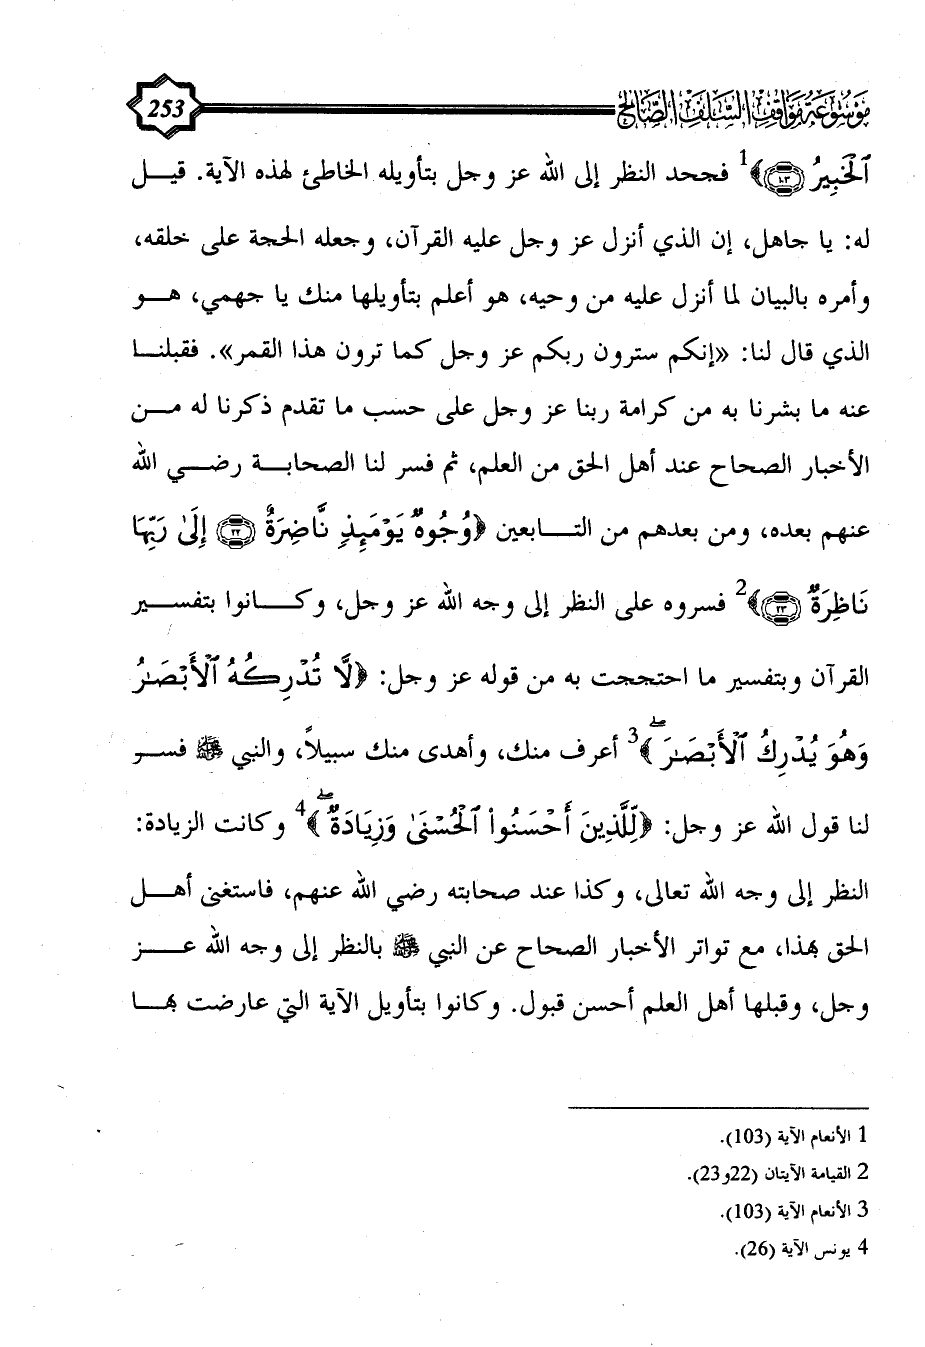 موسوعة مواقف السلف الصالح 253
ٱلْخَبِيرُ ۝١٠٣﴾1 فجحد النظر إلى الله عز وجل بتأويله الخاطئ لهذه الآية. قيـل
له: يا جاهل، إن الذي أنزل عز وجل عليه القرآن، وجعله الحجة على خلقه،
وأمره بالبيان لما أنزل عليه من وحيه، هو أعلم بتأويلها منك يا جهمي، هـو
الذي قال لنا: «إنكم سترون ربكم عز وجل كما ترون هذا القمر». فقبلنـا
عنه ما بشرنا به من كرامة ربنا عز وجل على حسب ما تقدم ذكرنا له مـن
الأخبار الصحاح عند أهل الحق من العلم، ثم فسر لنا الصحابـة رضـي الله
عنهم بعده، ومن بعدهم من التـابعين ﴿وُجُوهٌ يَوْمَئِذٍ نَّاضِرَةٌ ۝٢٢ إِلَىٰ رَبِّهَا
نَاظِرَةٌ ۝٢٣﴾2 فسروه على النظر إلى وجه الله عز وجل، وكـانوا بتفسـير
القرآن وبتفسير ما احتججت به من قوله عز وجل: ﴿لَّا تُدْرِكُهُ ٱلْأَبْصَٰرُ
وَهُوَ يُدْرِكُ ٱلْأَبْصَٰرَۖ﴾3 أعرف منك، وأهدى منك سبيلاً، والنبي ﷺ فسـر
لنا قول الله عز وجل: ﴿لِّلَّذِينَ أَحْسَنُوا۟ ٱلْحُسْنَىٰ وَزِيَادَةٌۖ﴾4 وكانت الزيادة:
النظر إلى وجه الله تعالى، وكذا عند صحابته رضي الله عنهم، فاستغنى أهـل
الحق بهذا، مع تواتر الأخبار الصحاح عن النبي ﷺ بالنظر إلى وجه الله عـز
وجل، وقبلها أهل العلم أحسن قبول. وكانوا بتأويل الآية التي عارضت بهـا
1 الأنعام الآية (103).
2 القيامة الآيتان (22و23).
3 الأنعام الآية (103).
4 يونس الآية (26).